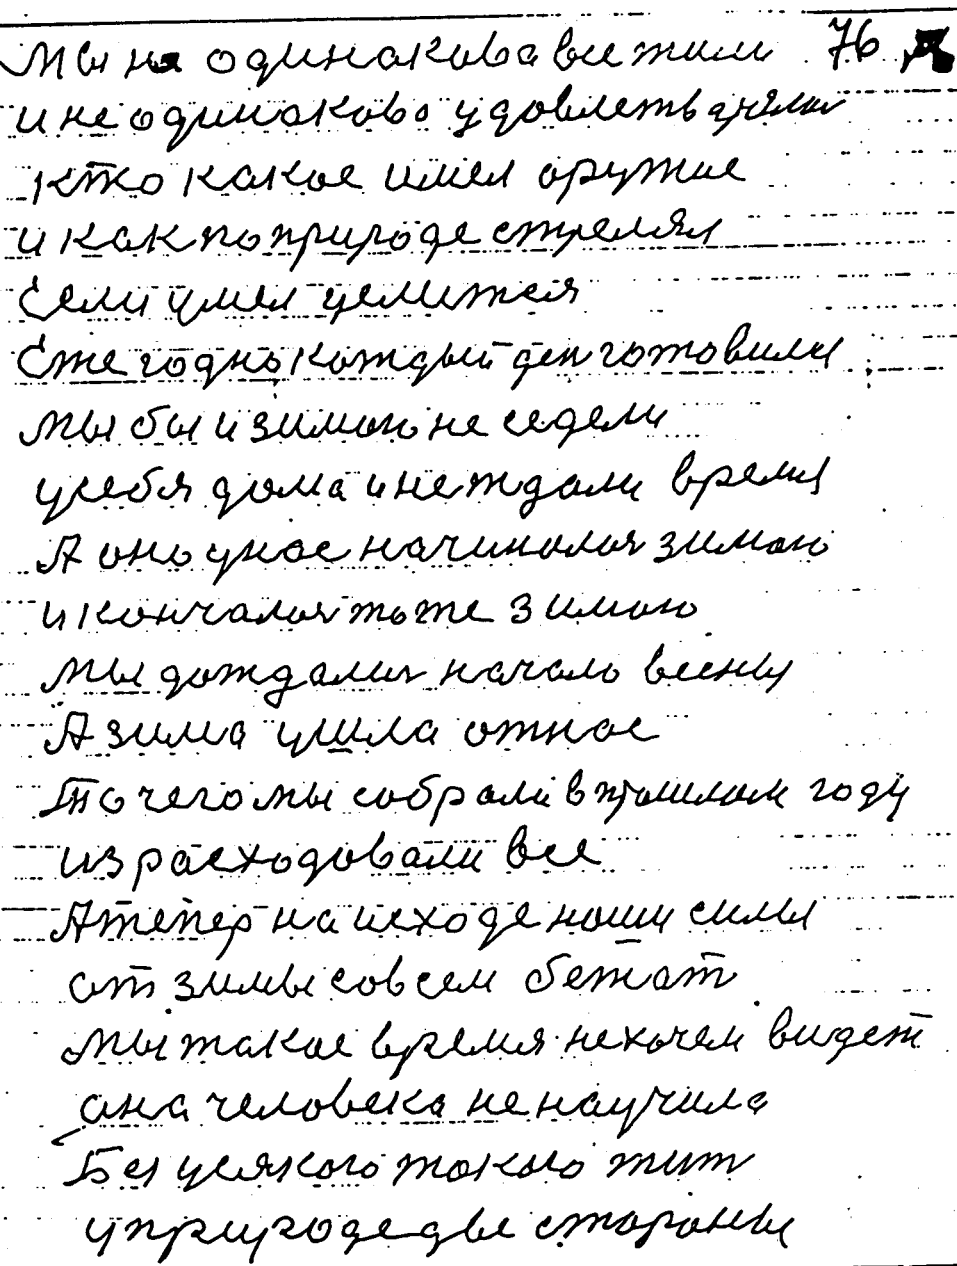 Мы на одинакова все жили 76
и не одинаково удовлетварялись
кто какое имел оружие
и как по природе стрелял
Если умел целится
Ежегодно каждый ден готовили
мы бы и зимою не седели
у себя дома и не ждали время
А оно у нас начиналось зимою
и кончалось тоже зимою
мы дождались начало весны
А зима ушла от нас
То чего мы собрали в прошлом году
израсходовали все
А тепер на исходе наши силы
от зимы совсем бежат
мы такое время не хочем видет
она человека не научила
Без усякого такого жит
у природе две стороны